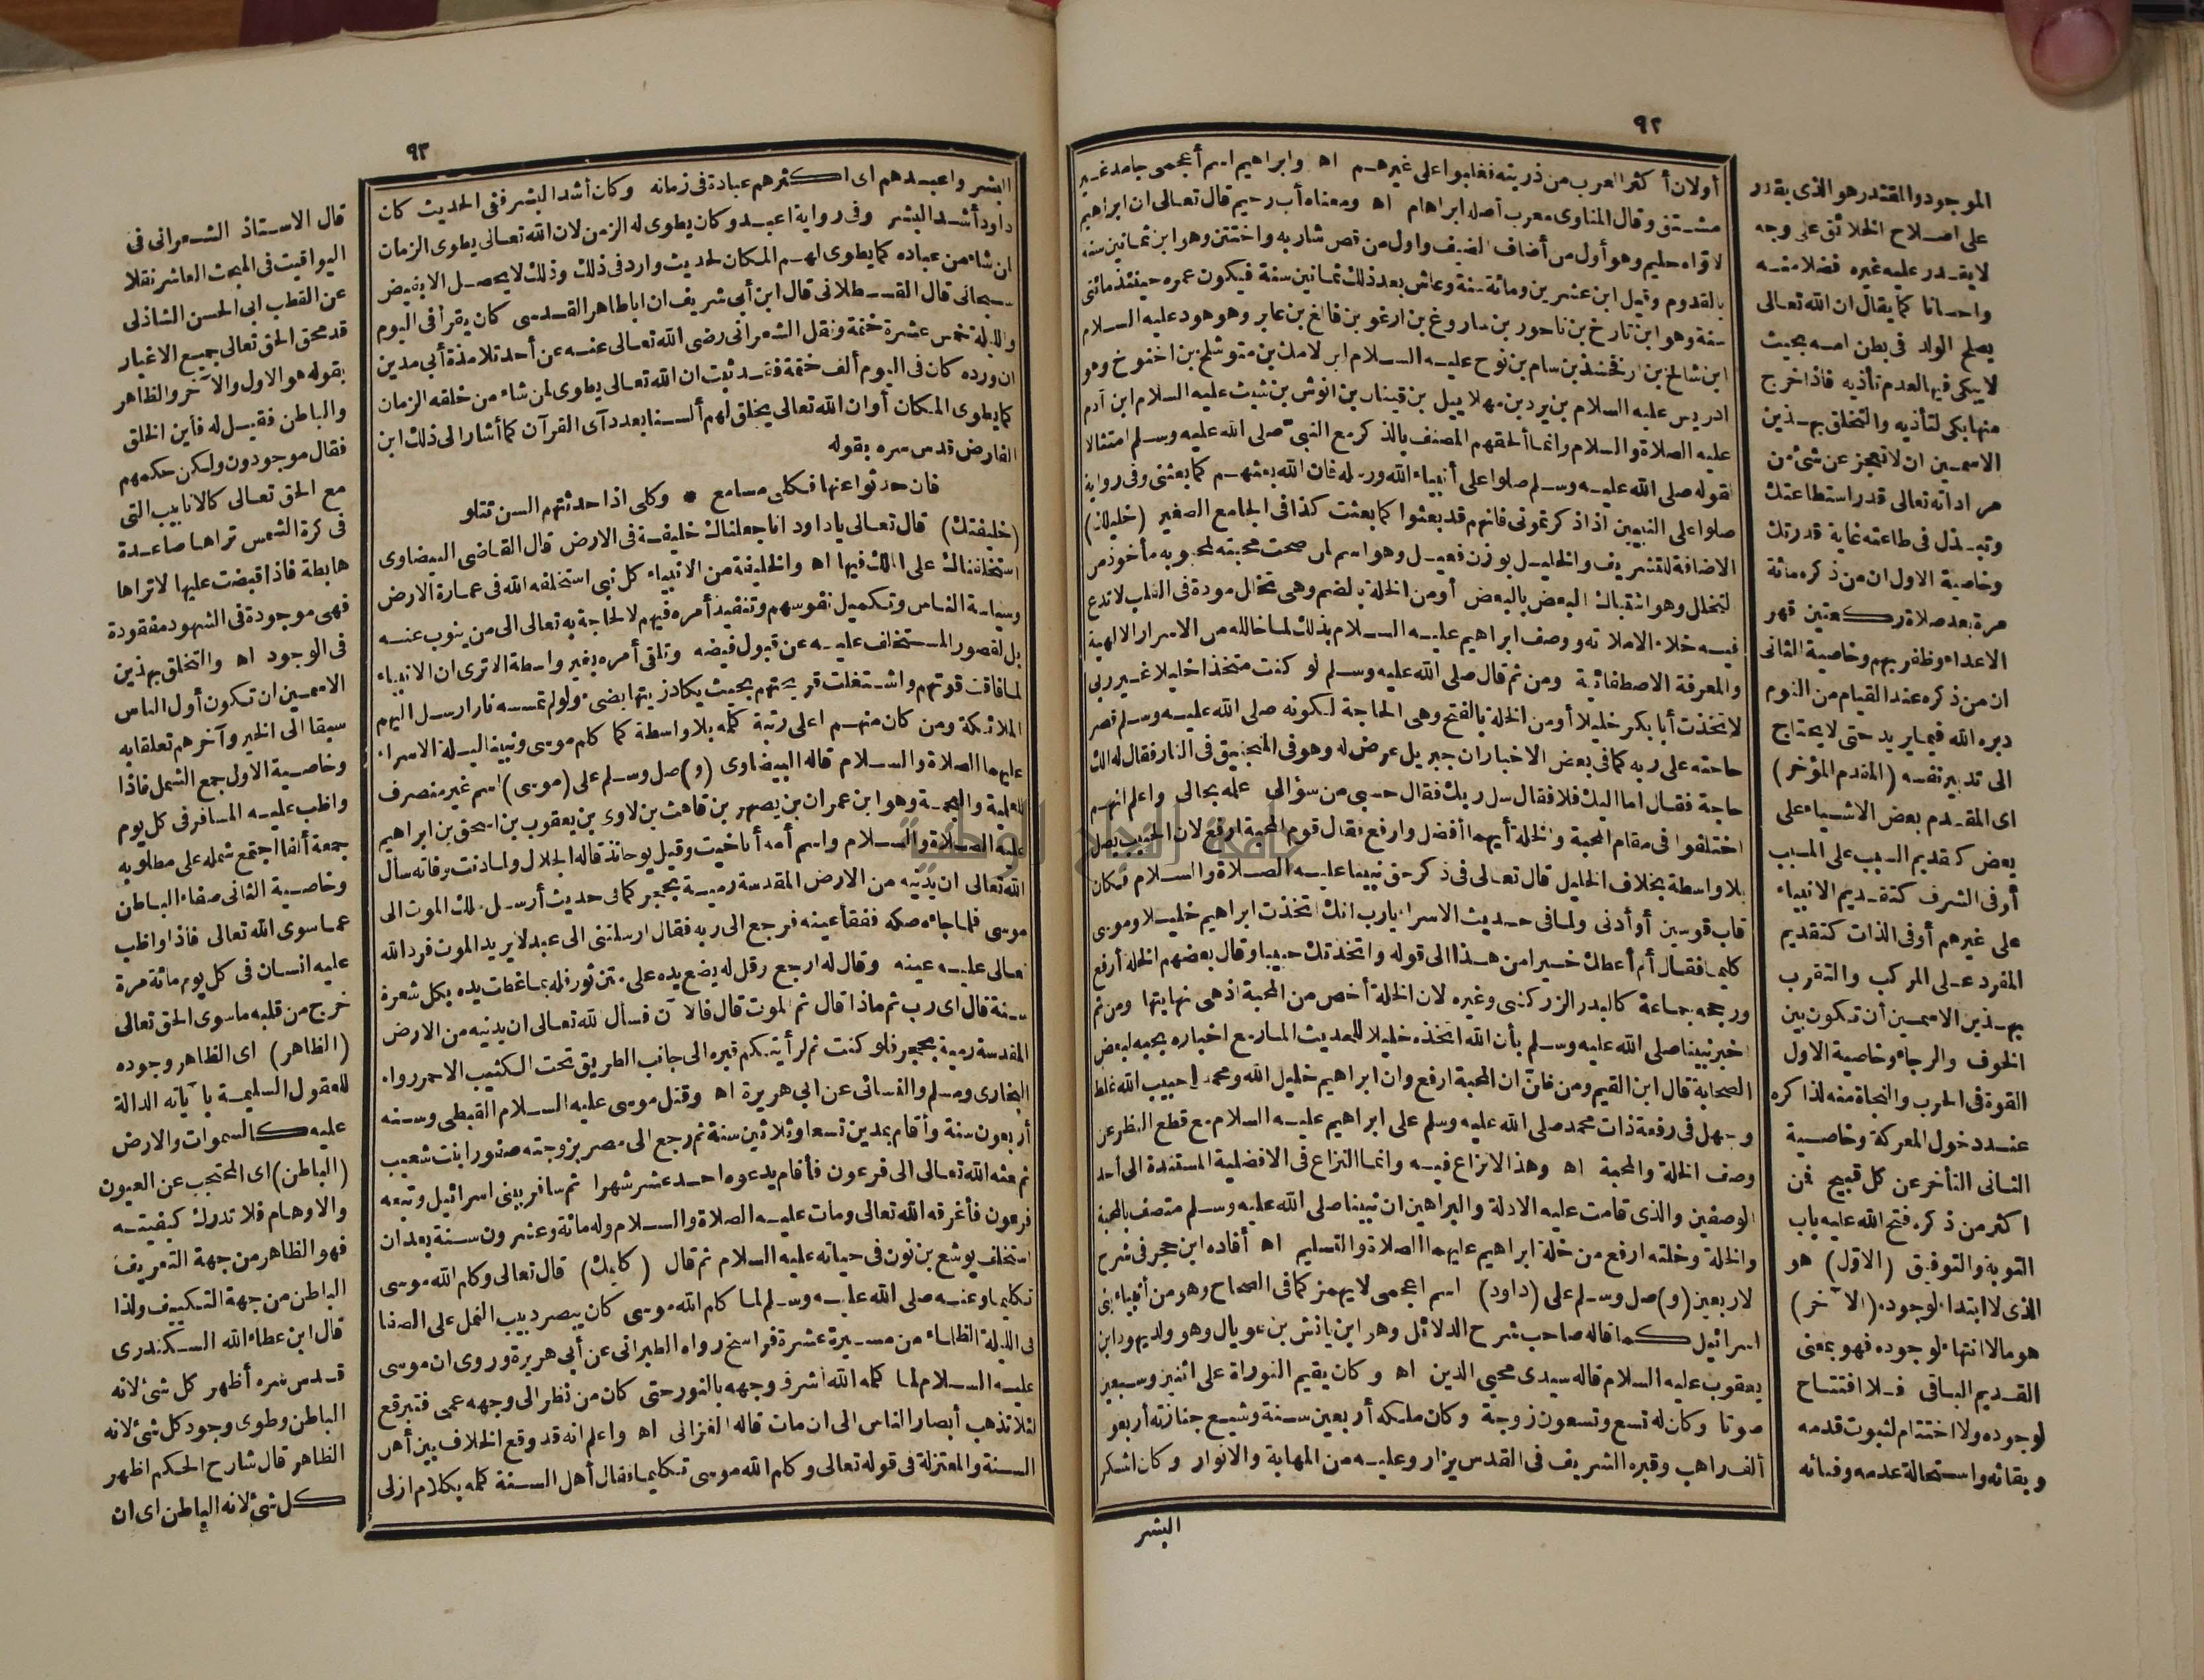 ٩٢
أولان أكثر العرب من ذريته فغلبوا على غيرهم اه وابراهيم اسم أعجمى جامد غير
مشتق وقال المناوى معرب أصله ابراهام اه ومعناه أب رحيم قال تعالى ان ابراهيم
لاواه حليم وهو أول من أضاف الضيف واول من قص شاربه واختتن وهو ابن ثمانين سنة
بالقدوم وقيل ابن عشرين ومائة سنة وعاش بعد ذلك ثمانين سنة فيكون عمره حينئذ مائتى
سنة وهو ابن تارخ بن ناحور بن ساروغ بن ارغو بن فالغ بن عابر وهو هود عليه السلام
ابن شالخ بن ارفخشذ بن سام بن نوح عليه السلام ابن لامك بن متوشلخ بن اخنوخ وهو
ادريس عليه السلام بن يرد بن مهلاييل بن قينان بن انوش بن شيث عليه السلام ابن آدم
عليه الصلاة والسلام وانما ألحقهم المصنف بالذكر مع النبى صلى الله عليه وسلم امتثالا
لقوله صلى الله عليه وسلم صلوا على أنبياء الله ورسله فان الله بعثهم كما بعثنى وفى رواية
صلوا على النبيين اذا ذكرتمونى فانهم قد بعثوا كما بعثت كذا فى الجامع الصغير (خليلك)
الاضافة للتشريف والخليل بوزن فعيل وهو اسم لمن صحت محبته لمحبوبه مأخوذ من
التخلل وهو اشتباك البعض بالبعض أو من الخلة بالضم وهى تخال مودة فى القلب لا تدع
فيه خلاء الا ملأته ووصف ابراهيم عليه السلام بذلك لما خالله من الاسرار الالهية
والمعرفة الاصطفائية ومن ثم قال صلى الله عليه وسلم لو كنت متخذا خليلا غير ربى
لاتخذت أبا بكر خليلا أو من الخلة بالفتح وهى الحاجة لكونه صلى الله عليه وسلم قصر
حاجته على ربه كما فى بعض الاخبار ان جبريل عرض له وهو فى المنجنيق فى النار فقال له الك
حاجة فقال اما اليك فلا فقال سل ربك فقال حسبى من سؤالى علمه بحالى واعلم انهم
اختلفوا فى مقام المحبة والخلة أيهما أفضل وارفع فقال قوم المحبة ارفع لان الحبيب يصل
بلا واسطة بخلاف الخليل قال تعالى فى ذكر حق نبينا عليه الصلاة والسلام فكان
قاب قوسين أو أدنى ولما فى حديث الاسراء يارب انك اتخذت ابراهيم خليلا وموسى
كليما فقال ألم أعطك خيرا من هذا الى قوله واتخذتك حبيبا وقال بعضهم الخلة أرفع
ورجحه جماعة كالبدر الزركشى وغيره لان الخلة أخص من المحبة اذ هى نهايتها ومن ثم
اخبر نبينا صلى الله عليه وسلم بأن الله اتخذه خليلا للحديث المار مع اخباره بحبه لبعض
الصحابة قال ابن القيم ومن ظن ان المحبة ارفع وان ابراهيم خليل الله ومحمدا حبيب الله غلط
وجهل فى رفعة ذات محمد صلى الله عليه وسلم على ابراهيم عليه السلام مع قطع النظر عن
وصف الخلة والمحبة اه وهذا لا نزاع فيه وانما النزاع فى الافضلية المستندة الى أحد
الوصفين والذى قامت عليه الادلة والبراهين ان نبينا صلى الله عليه وسلم متصف بالمحبة
والخلة وخلته ارفع من خلة ابراهيم عليهما الصلاة والتسليم اه أفاده ابن حجر فى شرح
الاربعين (و) صل وسلم على (داود) اسم اعجمى لا يهمز كما فى الصحاح وهو من أنبياء بنى
اسرائيل كما قاله صاحب شرح الدلائل وهو ابن يانش بن عوبال وهو ولد يهودا بن
يعقوب عليه السلام قاله سيدى محيى الدين اه وكان يقيم التوراة على اثنين وسبعين
صوتا وكان له تسع وتسعون زوجة وكان ملكه أربعين سنة وشيع جنازته أربعو
ألف راهب وقبره الشريف فى القدس يزار وعليه من المهابة والانوار وكان اشكر
البشر
الموجود والمقتدر هو الذى يقدر
على اصلاح الخلائق على وجه
لا يقدر عليه غيره فضلا منه
واحسانا كما يقال ان الله تعالى
يصلح الولد فى بطن امه بحيث
لا يبكى فيها لعدم تأذيه فاذا خرج
منها بكى لتأذيه والتخلق بهذين
الاسمين ان لا تعجز عن شئ من
مراداته تعالى قدر استطاعتك
وتبذل فى طاعته غاية قدرتك
وخاصية الاول ان من ذكره مائة
مرة بعد صلاة ركعتين قهر
الاعداء وظفر بهم وخاصية الثانى
ان من ذكره عند القيام من النوم
دبره الله فيما يريد حتى لا يحتاج
الى تدبير نفسه (المقدم المؤخر)
اى المقدم بعض الاشياء على
بعض كتقديم السبب على المسبب
أو فى الشرف كتقديم الانبياء
على غيرهم أو فى الذات كتقديم
المفرد على المركب والتقرب
بهذين الاسمين أن تكون بين
الخوف والرجاء وخاصية الاول
القوة فى الحرب والنجاة منه لذاكره
عند دخول المعركة وخاصية
الثانى التأخر عن كل قبيح فمن
اكثر من ذكره فتح الله عليه باب
التوبة والتوفيق (الاول) هو
الذى لا ابتداء لوجوده (الآخر)
هو مالا انتهاء لوجوده فهو بمعنى
القديم الباقى فلا افتتاح
لوجوده ولا اختتام لثبوت قدمه
وبقائه واستحالة عدمه وفنائه
٩٣
البشر واعبدهم اى اكثرهم عبادة فى زمانه وكان أشد البشر ففى الحديث كان
داود أشد البشر وفى رواية اعبد وكان يطوى له الزمن لان الله تعالى يطوى الزمان
لمن شاء من عباده كما يطوى لهم المكان لحديث وارد فى ذلك وذلك لا يحصل الا بفيض
سبحانى قال القسطلانى قال ابن أبى شريف ان اباطاهر القدسى كان يقرأ فى اليوم
والليلة خمس عشرة ختمة ونقل الشعرانى رضى الله تعالى عنه عن أحد تلامذة أبى مدين
ان ورده كان فى اليوم ألف ختمة فقد ثبت ان الله تعالى يطوى لمن شاء من خلقه الزمان
كما يطوى المكان أو ان الله تعالى يخلق لهم ألسنا بعدد آى القرآن كما أشار الى ذلك ابن
الفارض قدس سره بقوله
فان حدثوا عنها فكلى مسامع * وكلى اذا حدثتهم السن تتلو
(خليفتك) قال تعالى ياداود انا جعلناك خليفة فى الارض قال القاضى البيضاوى
استخلفناك على الملك فيها اه والخليفة من الانبياء كل نبى استخلفه الله فى عمارة الارض
وسياسة الناس وتكميل نفوسهم وتنفيذ أمره فيهم لا لحاجة به تعالى الى من ينوب عنه
بل لقصور المستخلف عليه عن قبول فيضه وتلقى أمره بغير واسطة الاترى ان الانبياء
لما فاقت قوتهم واشتعلت قريحتهم بحيث يكاد زيتها يضئ ولو لم تمسسه نار ارسل اليهم
الملائكة ومن كان منهم اعلى رتبة كلمه بلا واسطة كما كلم موسى ونبينا ليلة الاسراء
عليهما الصلاة والسلام قاله البيضاوى (و) صل وسلم على (موسى) اسم غير منصرف
للعلمية والعجمة وهو ابن عمران بن يصهر بن قاهث بن لاوى بن يعقوب بن اسحق بن ابراهيم
عليه الصلاة والسلام واسم أمه أباخيت وقيل يوحانذ قاله الجلال ولما دنت وفاته سأل
الله تعالى ان يدنيه من الارض المقدسة رمية بحجر كما فى حديث أرسل ملك الموت الى
موسى فلما جاءه صكه ففقأ عينه فرجع الى ربه فقال ارسلتنى الى عبد لا يريد الموت فرد الله
تعالى عليه عينه وقال له ارجع وقل له يضع يده على متن ثور فله بما غطت يده بكل شعرة
سنة قال اى رب ثم ماذا قال ثم الموت قال فالآن فسأل الله تعالى ان يدنيه من الارض
المقدسة رمية بحجر فلو كنت ثم لأريتكم قبره الى جانب الطريق تحت الكثيب الاحمر رواه
البخارى ومسلم والنسائى عن ابى هريرة اه وقتل موسى عليه السلام القبطى وسنه
أربعون سنة وأقام بمدين تسعا وثلاثين سنة ثم رجع الى مصر بزوجته صفورا بنت شعيب
ثم بعثه الله تعالى الى فرعون فأقام يدعوه احد عشر شهرا ثم سافر ببنى اسرائيل وتبعه
فرعون فأغرقه الله تعالى ومات عليه الصلاة والسلام وله مائة وعشرون سنة بعد ان
استخلف يوشع بن نون فى حياته عليه السلام ثم قال (كليمك) قال تعالى وكلم الله موسى
تكليما وعنه صلى الله عليه وسلم لما كلم الله موسى كان يبصر دبيب النمل على الصفا
فى الليلة الظلماء من مسيرة عشرة فراسخ رواه الطبرانى عن أبى هريرة وروى ان موسى
عليه السلام لما كلمه الله اشرق وجهه بالنور حتى كان من نظر الى وجهه عمى فتبرقع
لئلا تذهب أبصار الناس الى ان مات قاله الغزالى اه واعلم انه قد وقع الخلاف بين أهل
السنة والمعتزلة فى قوله تعالى وكلم الله موسى تكليما فقال أهل السنة كلمه بكلام ازلى
قال الاستاذ الشعرانى فى
اليواقيت فى المبحث العاشر نقلا
عن القطب ابى الحسن الشاذلى
قد محق الحق تعالى جميع الاغيار
بقوله هو الاول والآخر والظاهر
والباطن فقيل له فأين الخلق
فقال موجودون ولكن حكمهم
مع الحق تعالى كالانابيب التى
فى كرة الشمس تراها صاعدة
هابطة فاذا قبضت عليها لا تراها
فهى موجودة فى الشهود مفقودة
فى الوجود اه والتخلق بهذين
الاسمين ان تكون أول الناس
سبقا الى الخير وآخرهم تعلقا به
وخاصية الاول جمع الشمل فاذا
واظب عليه المسافر فى كل يوم
جمعة ألفا اجتمع شمله على مطلوبه
وخاصية الثانى صفاء الباطن
عما سوى الله تعالى فاذا واظب
عليه انسان فى كل يوم مائة مرة
خرج من قلبه ماسوى الحق تعالى
(الظاهر) اى الظاهر وجوده
للعقول السليمة بآياته الدالة
عليه كالسموات والارض
(الباطن) اى المحتجب عن العيون
والاوهام فلا تدرك كيفيته
فهو الظاهر من جهة التعريف
الباطن من جهة التكييف ولذا
قال ابن عطاء الله السكندرى
قدس سره أظهر كل شئ لانه
الباطن وطوى وجود كل شئ لانه
الظاهر قال شارح الحكم اظهر
كل شئ لانه الباطن اى ان